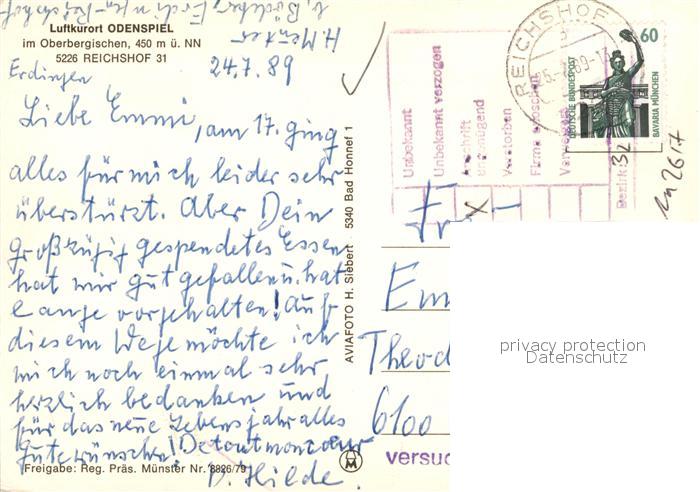 Luftkurort ODENSPIEL
im Oberbergischen, 450 m ü. NN
5226 REICHSHOF 31
24.7.89
Liebe Emmi, am 17. ging
alles für mich leider sehr
überstürzt. Aber Dein
großzügig gespendetes Essen
hat mir gut gefallen u. hat
lange vorgehalten! Auf
diesem Wege möchte ich
mich noch einmal sehr
herzlich bedanken und
für das neue Lebensjahr alles
Gute wünschen!
D. Hilde.
Freigabe: Reg. Präs. Münster Nr. 8826/79
AVIAFOTO H. Siebert 5340 Bad Honnef 1
Unbekannt
Unbekannt verzogen
Anschrift
ungenügend
Verstorben
Firma erloschen
Bezirk
X
REICHSHOF
60
DEUTSCHE BUNDESPOST
BAVARIA MÜNCHEN
32
Fr
Em
Theod
6100
versuc
privacy protection
Datenschutz